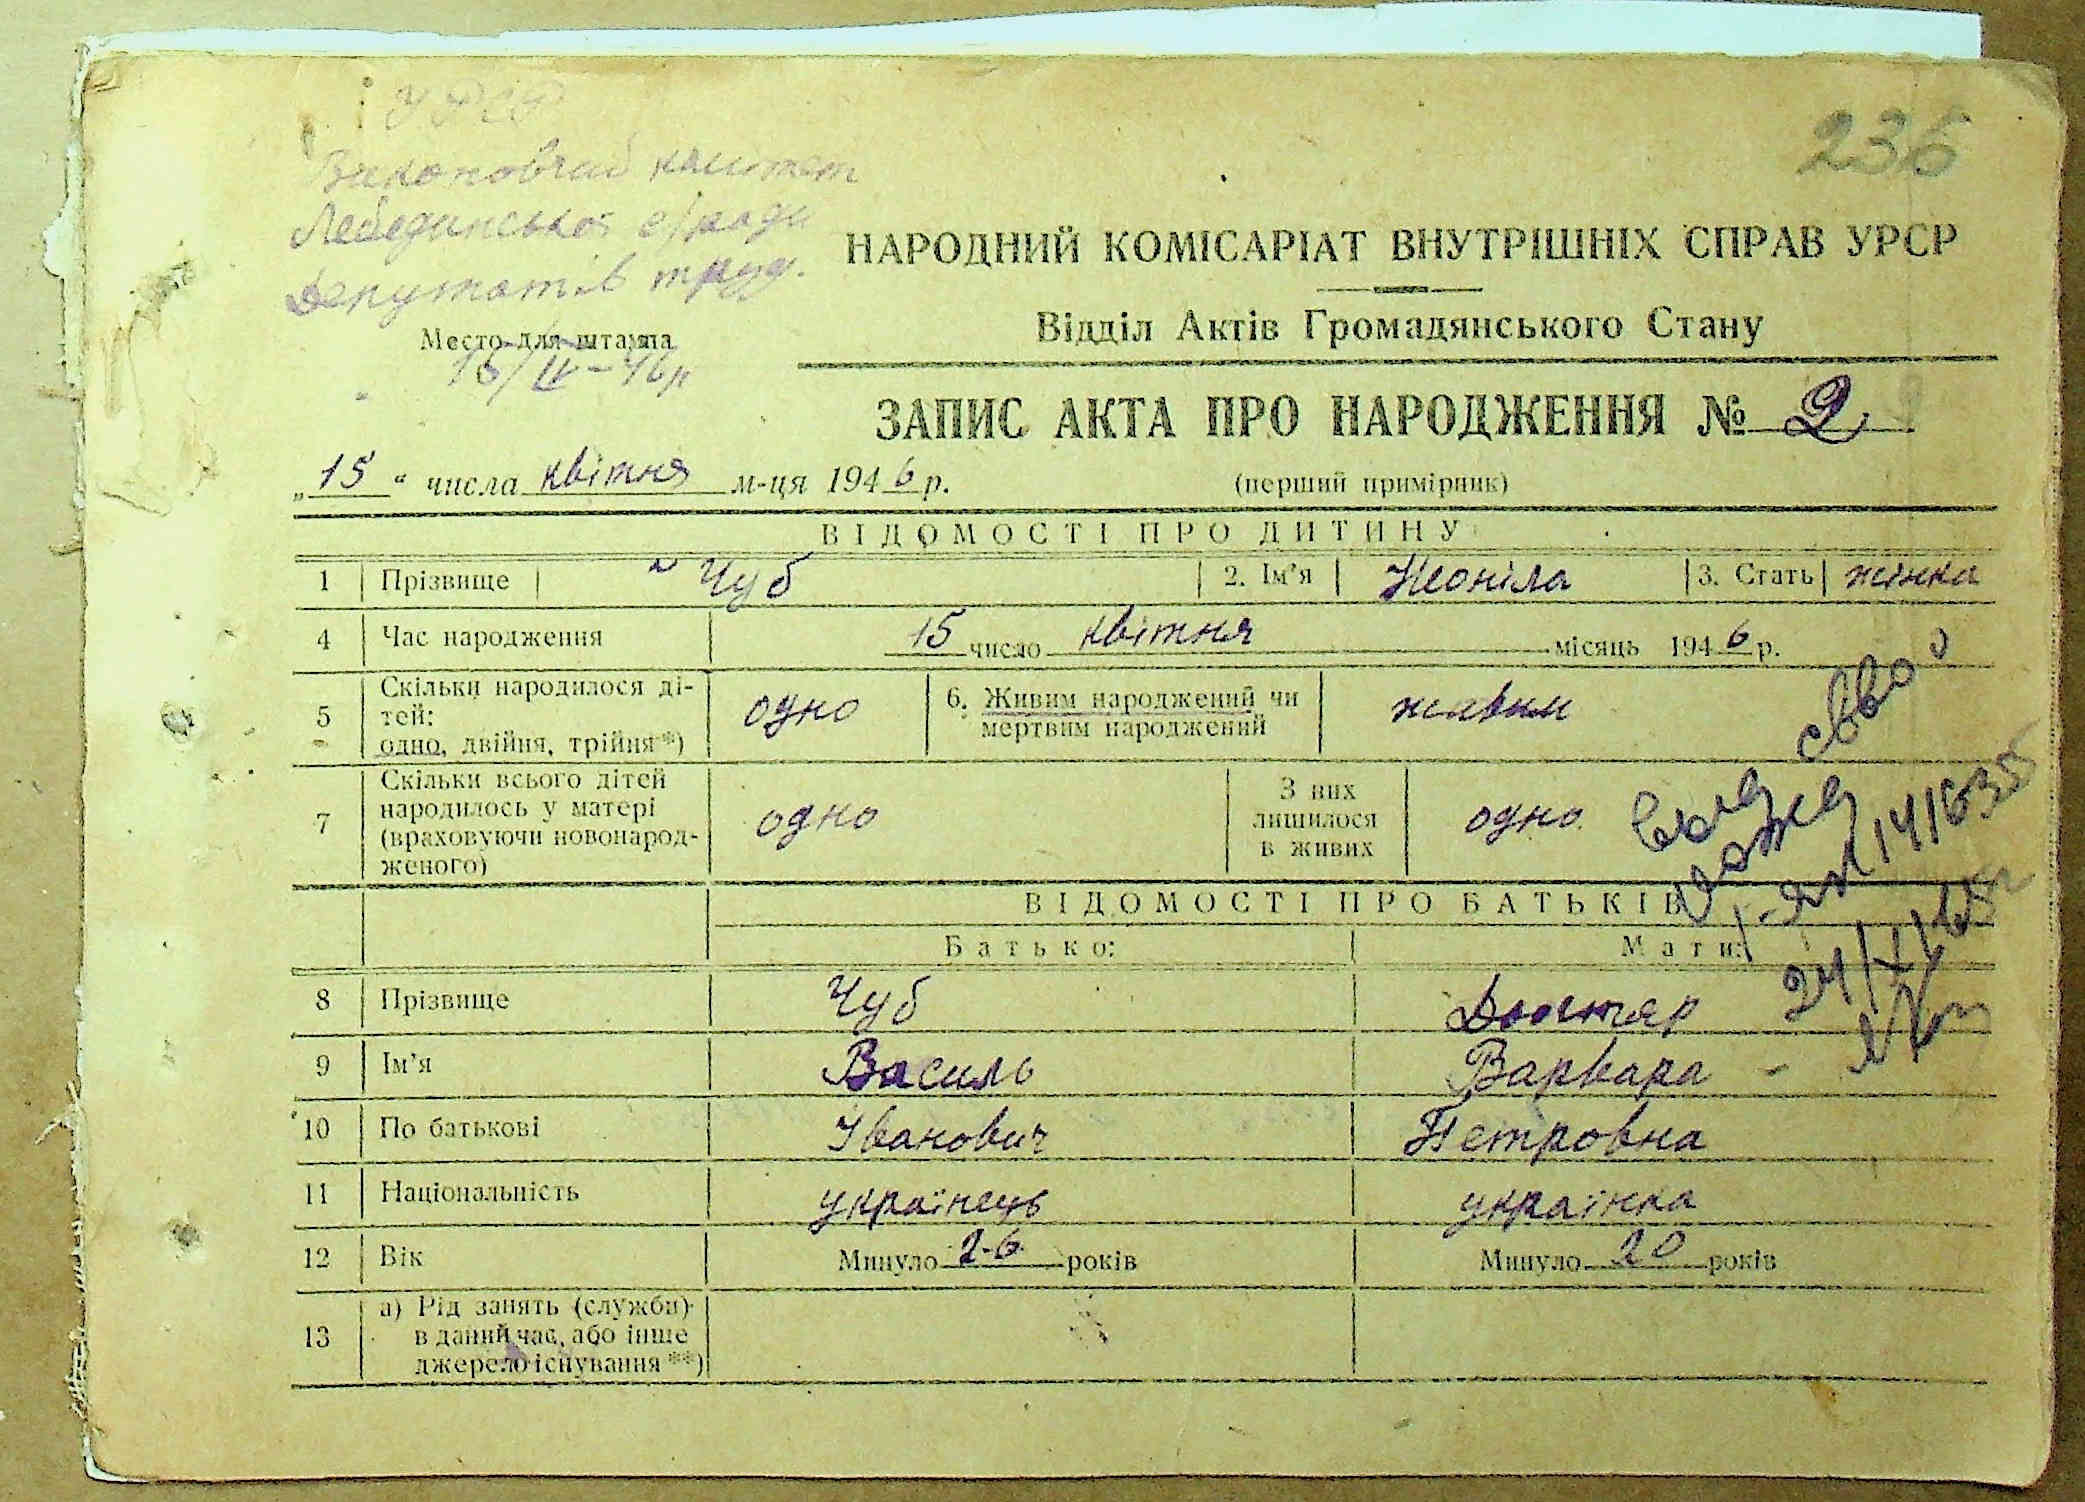 УРСР
236
Виконовчий комітет
Лебединської с/ради
Депутатів труд.
НАРОДНИЙ КОМІСАРІАТ ВНУТРІШНІХ СПРАВ УРСР
Відділ Актів Громадянського Стану
Место для штампа
15/IV-46р
ЗАПИС АКТА ПРО НАРОДЖЕННЯ № 2
„15“ числа квітня м-ця 1946 р.
(перший примірник)
ВІДОМОСТІ ПРО ДИТИНУ
1 Прізвище Чуб 2. Ім’я Неоніла 3. Стать жінка
4 Час народження 15 число квітня місяць 1946 р.
5 Скільки народилося ді-
тей:
одно, двійня, трійня*) одно 6. Живим народжений чи
мертвим народжений живим
7 Скільки всього дітей
народилось у матері
(враховуючи новонарод-
женого) одно З них
лишилося
в живих одно
141635
24/V/
ВІДОМОСТІ ПРО БАТЬКІВ
Батько: Мати:
8 Прізвище Чуб
9 Ім’я Василь Варвара
10 По батькові Іванович Петровна
11 Національність українець українка
12 Вік Минуло 26 років Минуло 20 років
13 а) Рід занять (служби)
в даний час, або інше
джерело існування**)